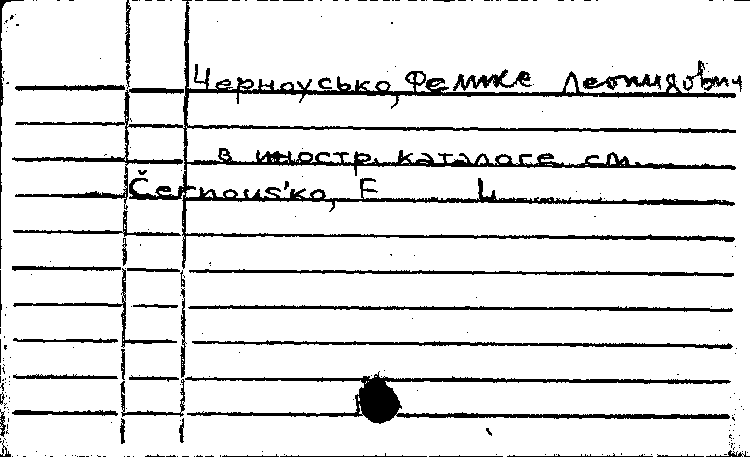 Черноусько, Феликс Леонидович
в иностр. каталоге см.
Černous'ko, F L